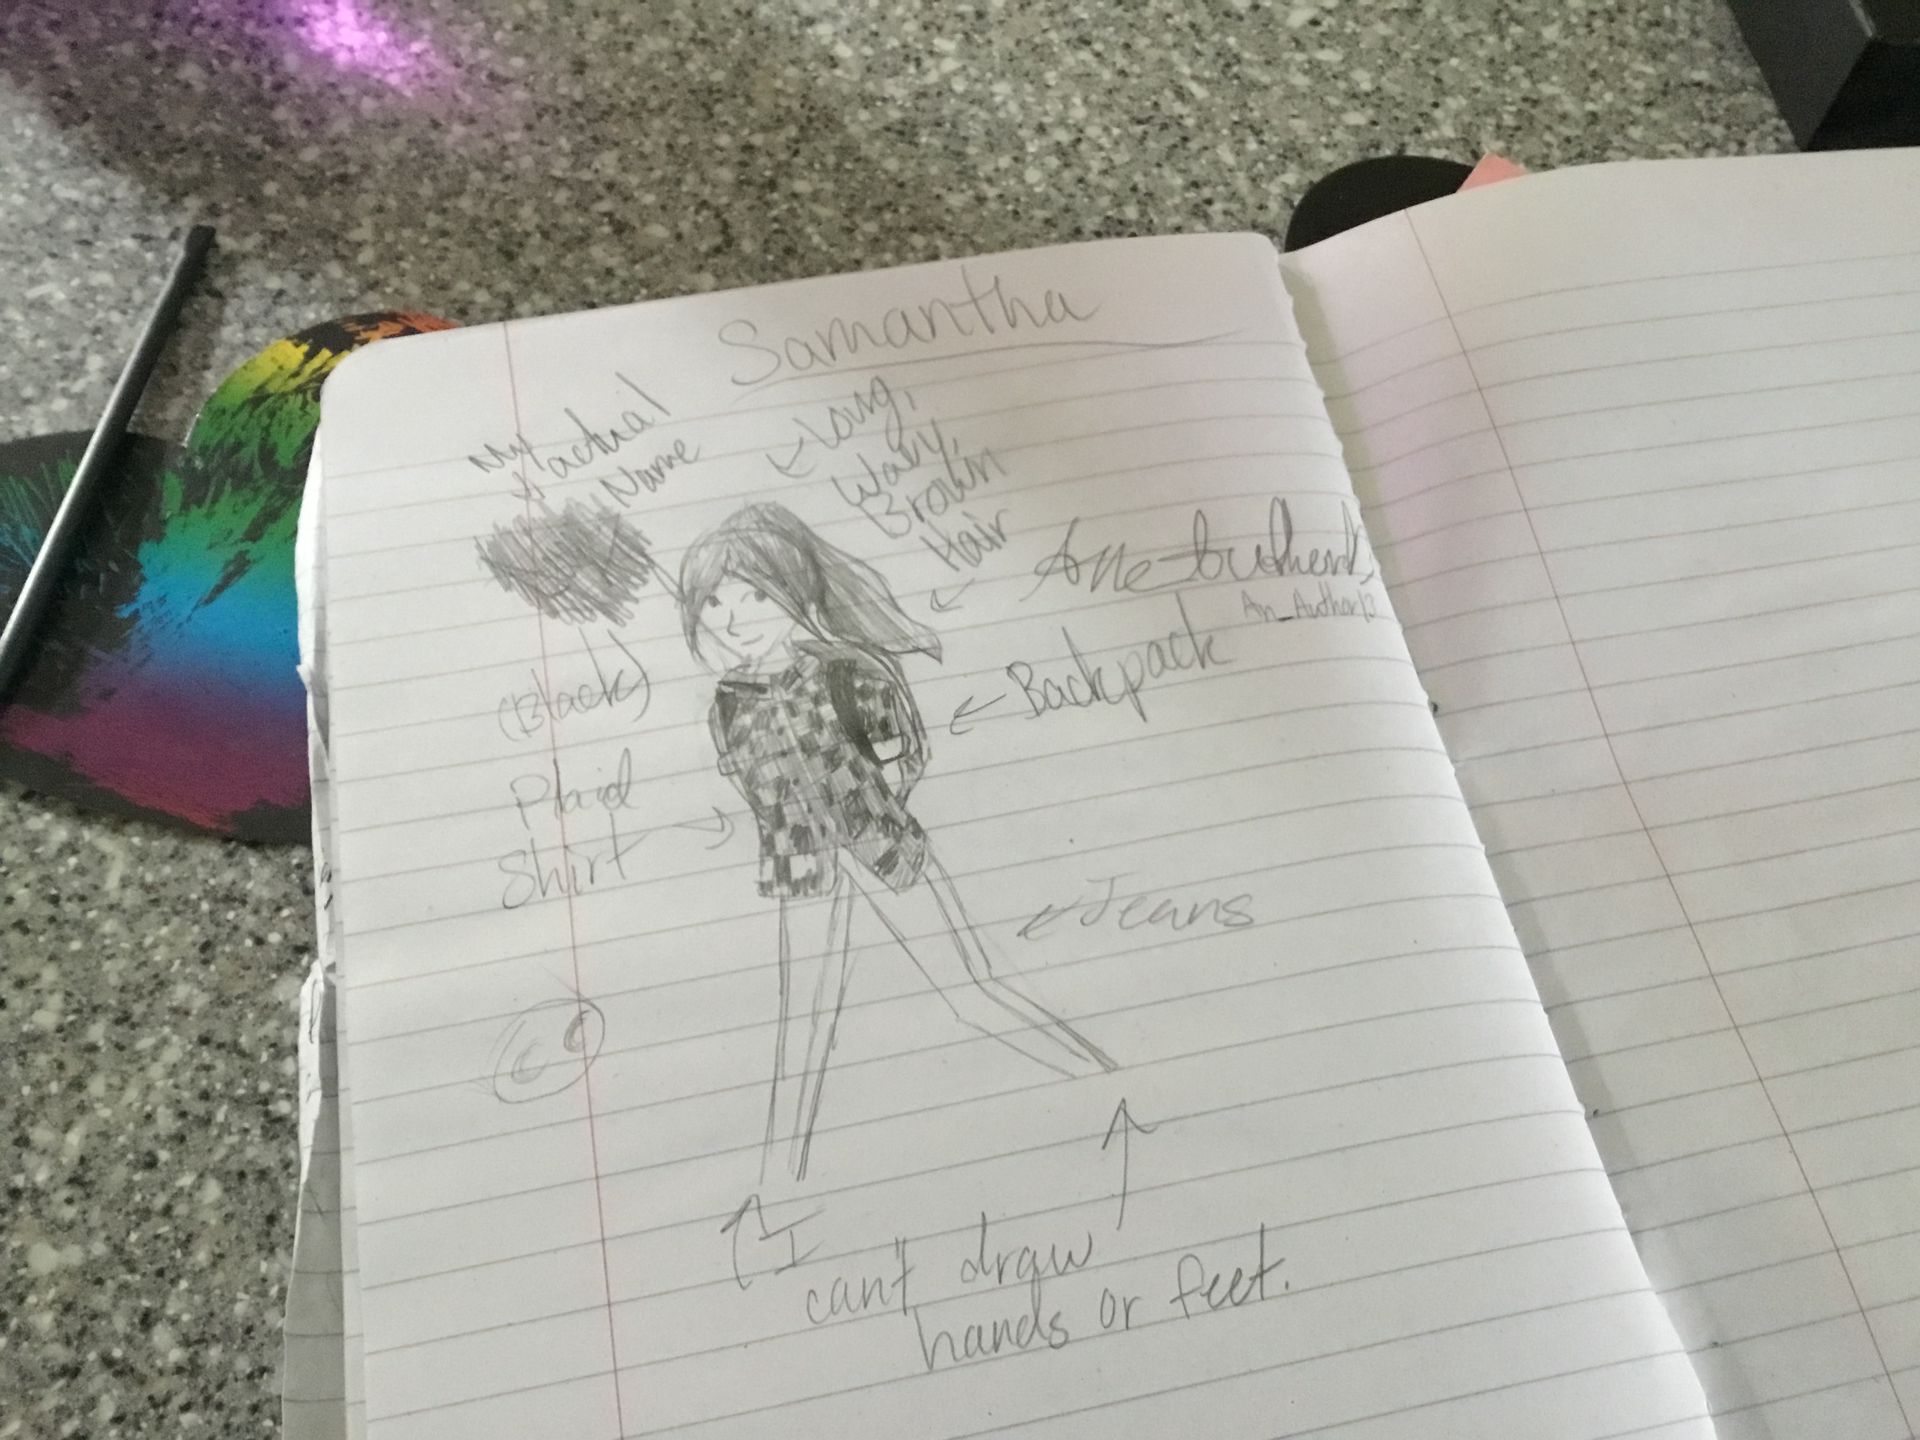 Samantha
My
actual
Name
Long,
Wavy,
Brown
Hair
An_Author12
(Black)
Backpack
Plaid
Shirt
Jeans
I
can't draw
hands or feet.